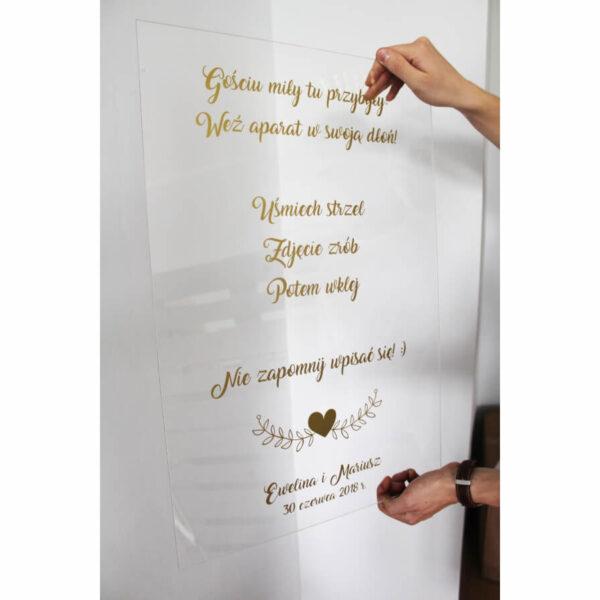 Gościu miły tu przybyły
Weź aparat w swoją dłoń!
Uśmiech strzel
Zdjęcie zrób
Potem wklej
Nie zapomnij wpisać się! :)
Ewelina i Mariusz
30 czerwca 2018 r.